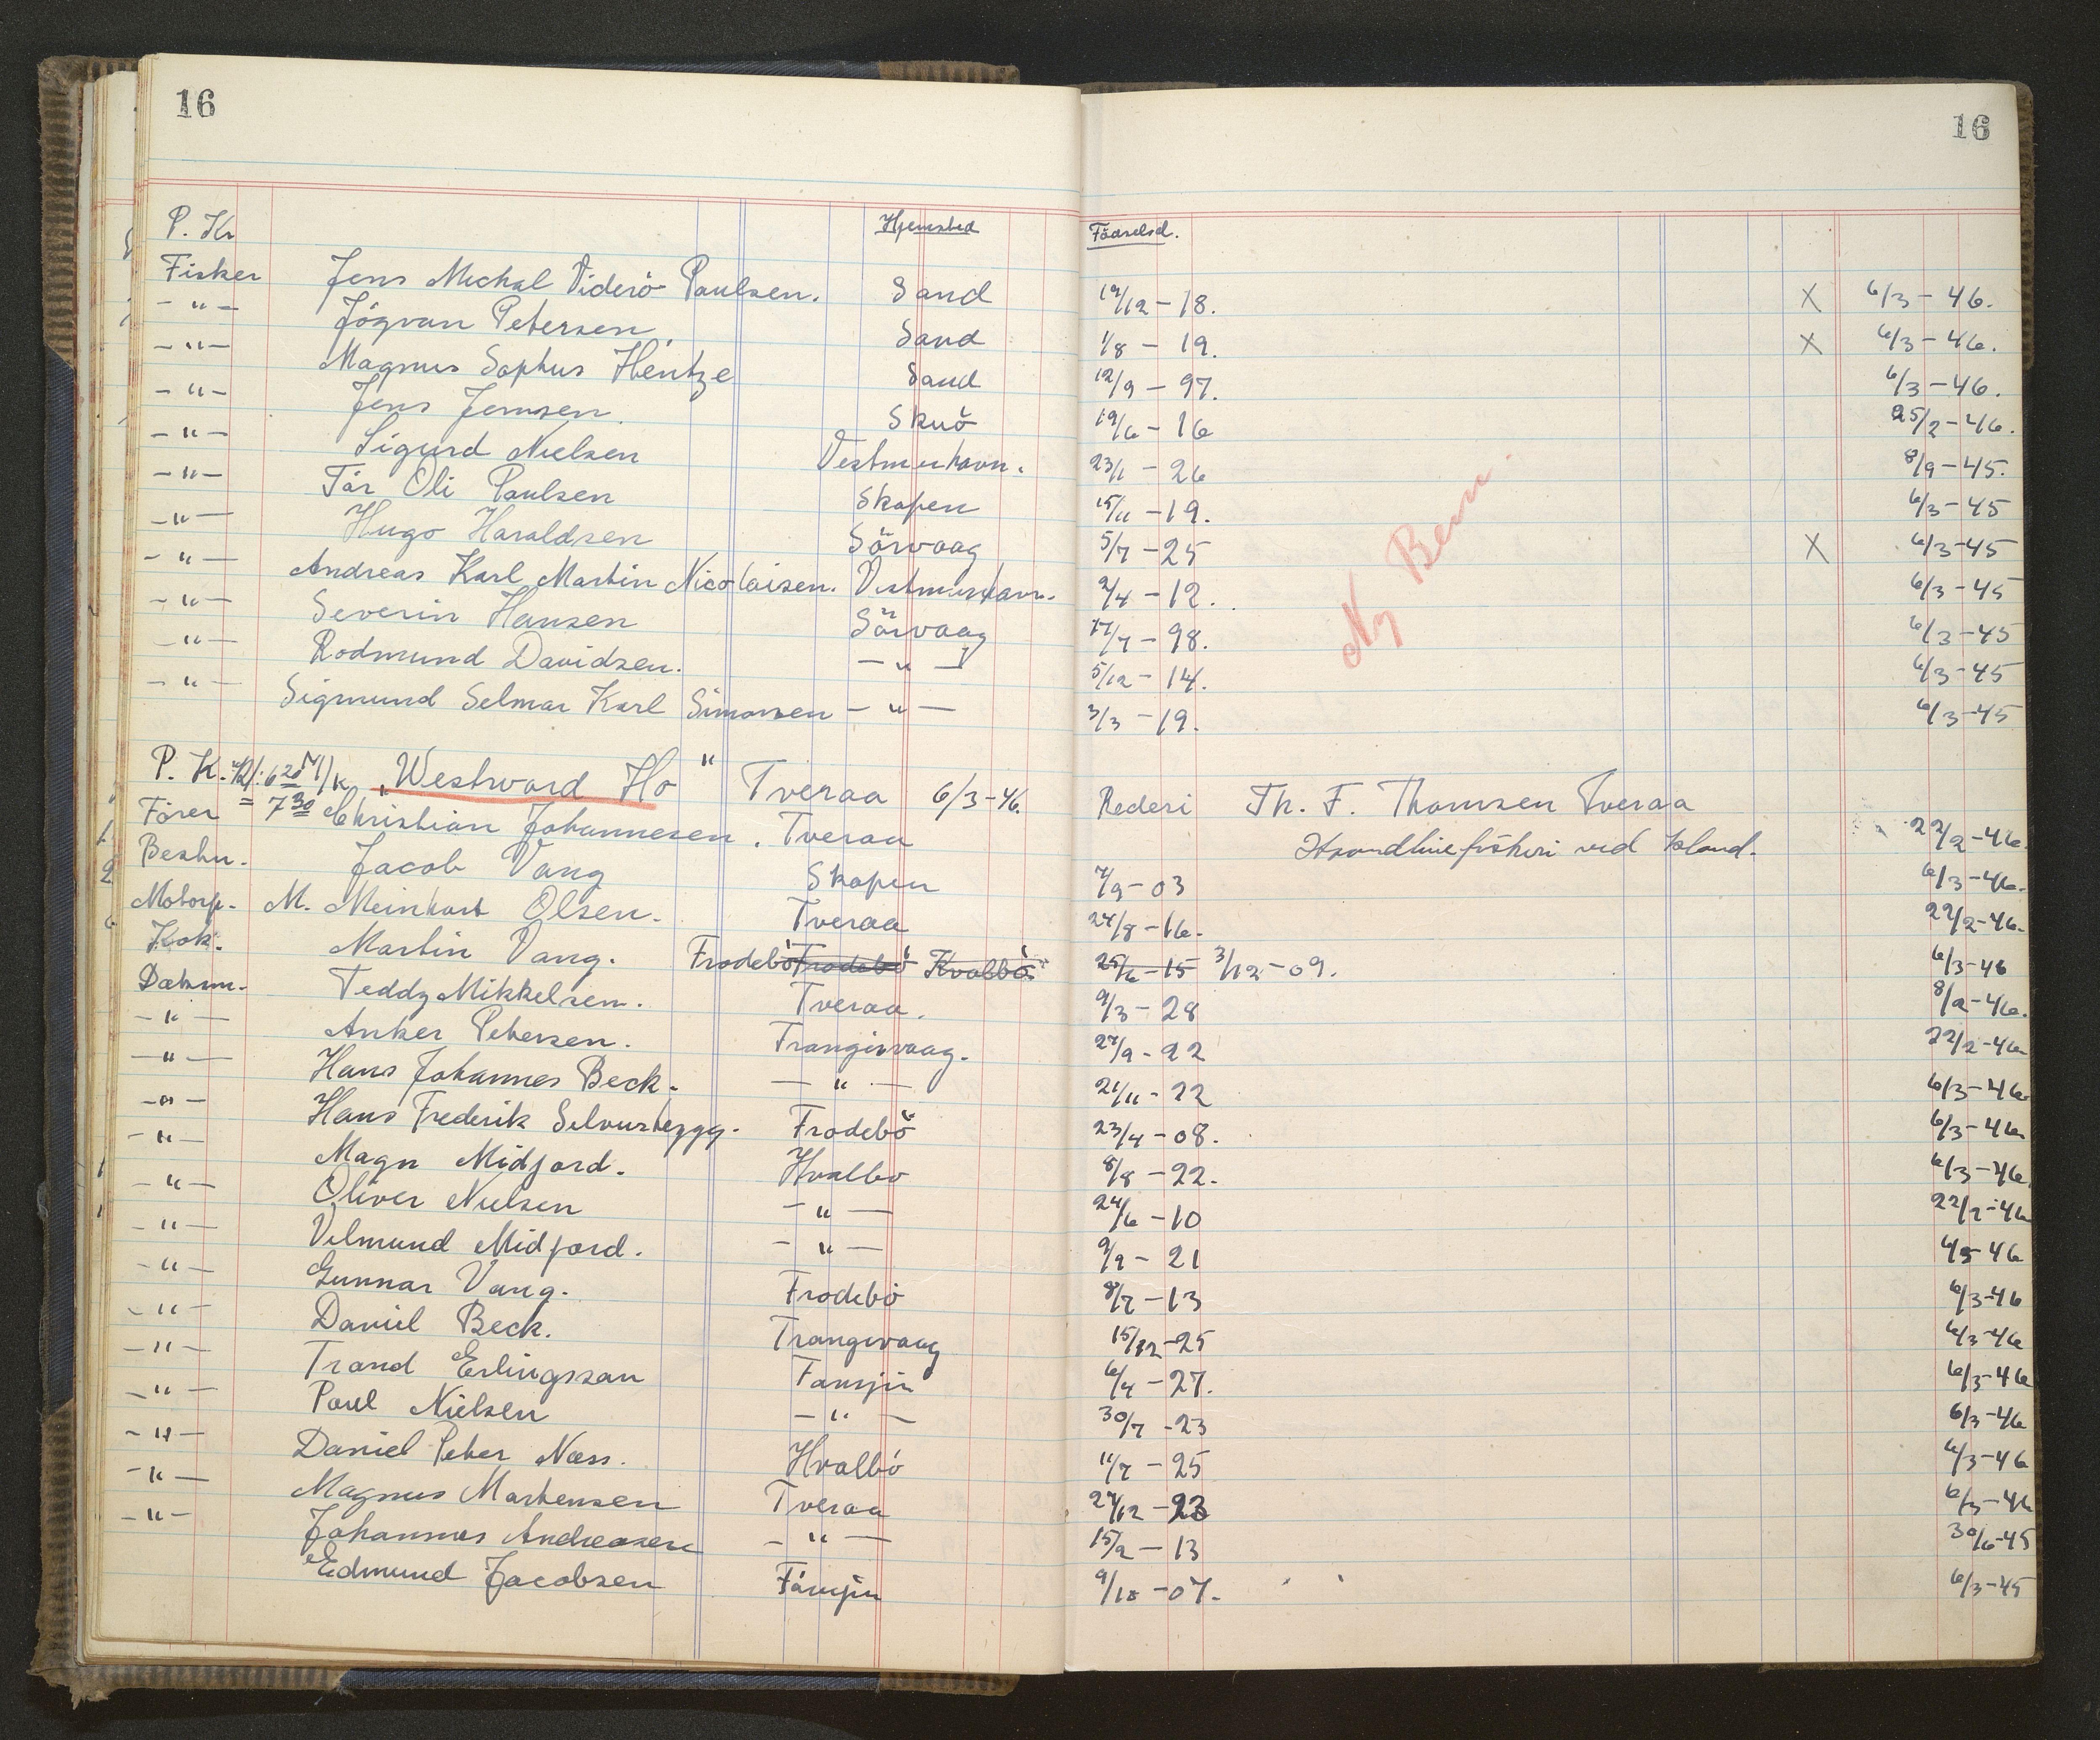 16 16
P. Kr Hjemsted Födselsd.
Fisker Jens Michal Viderö Paulsen. Sand 19/12 - 18. X 6/3 - 46.
- " - Jögvan Petersen Sand 1/8 - 19. X 6/3 - 46.
- " - Magnus Sophus Hentze Sand 12/9 - 97. 6/3 - 46.
- " - Jens Jensen Skuö 19/6 - 16 25/2 - 46.
- " - Sigurd Nielsen Vestmenhavn. 23/1 - 26 8/9 - 45.
- " - Tór Oli Paulsen Skopen 15/11 - 19. 6/3 - 45
- " - Hugo Haraldsen Sörvaag 5/7 - 25 X 6/3 - 45
- " - Andreas Karl Martin Nicolaisen. Vestmenhavn. 2/4 - 12. 6/3 - 45
- " - Severin Hansen Sörvaag 17/7 - 98. 6/3 - 45
- " - Rodmund Davidsen. - " - 5/12 - 14. 6/3 - 45
- " - Sigmund Selmar Karl Simonsen - " - 3/3 - 19. 6/3 - 45
Ny Bem.
P. K. M/k „Westward Ho" Tveraa 6/3 - 46. Rederi Th. F. Thomsen Tveraa
Förer = 7 30 Christian Johannesen. Tveraa Haandlinefiskeri ved Island. 22/2 - 46.
Bestm. Jacob Vang Skopen 7/9 - 03 6/3 - 46.
Motorp. M. Meinhart Olsen. Tveraa 24/8 - 16. 22/2 - 46.
Kok. Martin Vang. Frodebö Frodebö Kvalbö 25/6 - 15 3/12 - 09. 6/3 - 46
Dæksm. Teddy Mikkelsen. Tveraa. 9/3 - 28 8/2 - 46.
- " - Anker Petersen. Trangisvaag. 27/9 - 22 22/2 - 46
- " - Hans Johannes Beck. - " - 21/11 - 22 6/3 - 46
- " - Hans Frederik Selvurtegg. Frodebö 23/4 - 08. 6/3 - 46
- " - Magn Midjord. Hvalbo 8/8 - 22. 6/3 - 46
- " - Oliver Nielsen - " - 24/6 - 10 22/2 - 46
- " - Vilmund Midjord. - " - 9/9 - 21 6/3 - 46
- " - Gunnar Vang. Frodebö 8/7 - 13 6/3 - 46
- " - Daniel Beck. Trangisvaag 15/12 - 25 6/3 - 46
- " - Trond Erlingsson Famjin 6/4 - 27. 6/3 - 46
- " - Poul Nielsen - " - 30/7 - 23 6/3 - 46
- " - Daniel Peter Næss. Hvalbö 11/7 - 25 6/3 - 46
- " - Magnus Mortensen Tveraa 27/12 - 23 6/3 - 46
- " - Johannes Andreasen - " - 15/2 - 13 30/6 - 45
Edmund Jacobsen Fámjin 9/10 - 07. 6/3 - 45